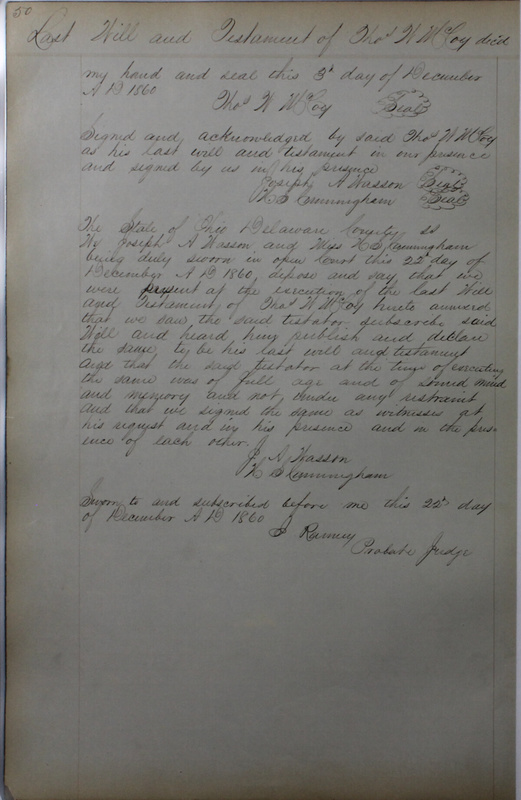 50
Last Will and Testament of Thos W McCoy dec'd
my hand and seal this 3d day of December
A D 1860
Thos W McCoy Seal
Signed and acknowledged by said Thos W McCoy
as his last will and testament in our presence
and signed by us in his presence
Joseph A Wasson Seal
H S Cunningham Seal
The State of Ohio Delaware County, ss
We Joseph A Wasson and H S Cunningham
being duly sworn in open Court this 22d day of
December A D 1860, depose and say, that we
were present at the execution of the last Will
and Testament of Thos W McCoy hereto annexed
that we saw the said testator subscribe said
Will and heard him publish and declare
the same to be his last will and testament
and that the said testator at the time of executing
the same was of full age and of sound mind
and memory and not under any restraint
and that we signed the same as witnesses at
his request and in his presence and in the pres-
ence of each other.
J A Wasson
H S Cunningham
Sworn to and subscribed before me this 22d day
of December A D 1860
Ramey
Probate Judge